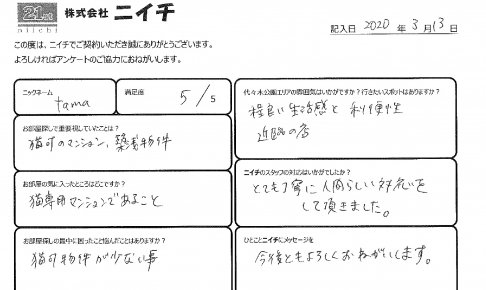 21st
niichi
株式会社 ニイチ
記入日 2020 年 3 月 13 日
この度は、ニイチでご契約いただき誠にありがとうございます。
よろしければアンケートのご協力におねがいします。
ニックネーム
tama
満足度
5 / 5
お部屋探しで重要視していたことは?
猫可のマンション、築浅物件
お部屋の気に入ったところはどこですか?
猫専用マンションであること
お部屋探しの最中に困ったこと悩んだことはありますか?
猫可物件が少ない事
代々木公園エリアの雰囲気はいかがですか?行きたいスポットはありますか?
程良い生活感と利便性
近隣の店
ニイチのスタッフの対応はいかがでしたか?
とても丁寧に人間らしい対応を
して頂きました。
ひとことニイチにメッセージを
今後ともよろしくおねがいします。